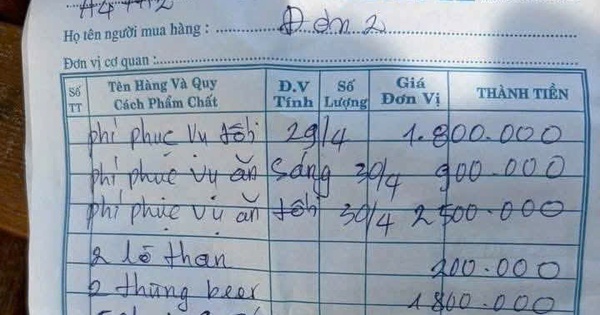 Họ tên người mua hàng : Đơn 2
Đơn vị cơ quan :
Số TT Tên Hàng Và Quy Cách Phẩm Chất Đ.V Tính Số Lượng Giá Đơn Vị THÀNH TIỀN
phí phục vụ tối 29/4 1.800.000
phí phục vụ ăn sáng 30/4 900.000
phí phục vụ ăn tối 30/4 2500.000
2 lò than 200.000
2 thùng beer 1800.000